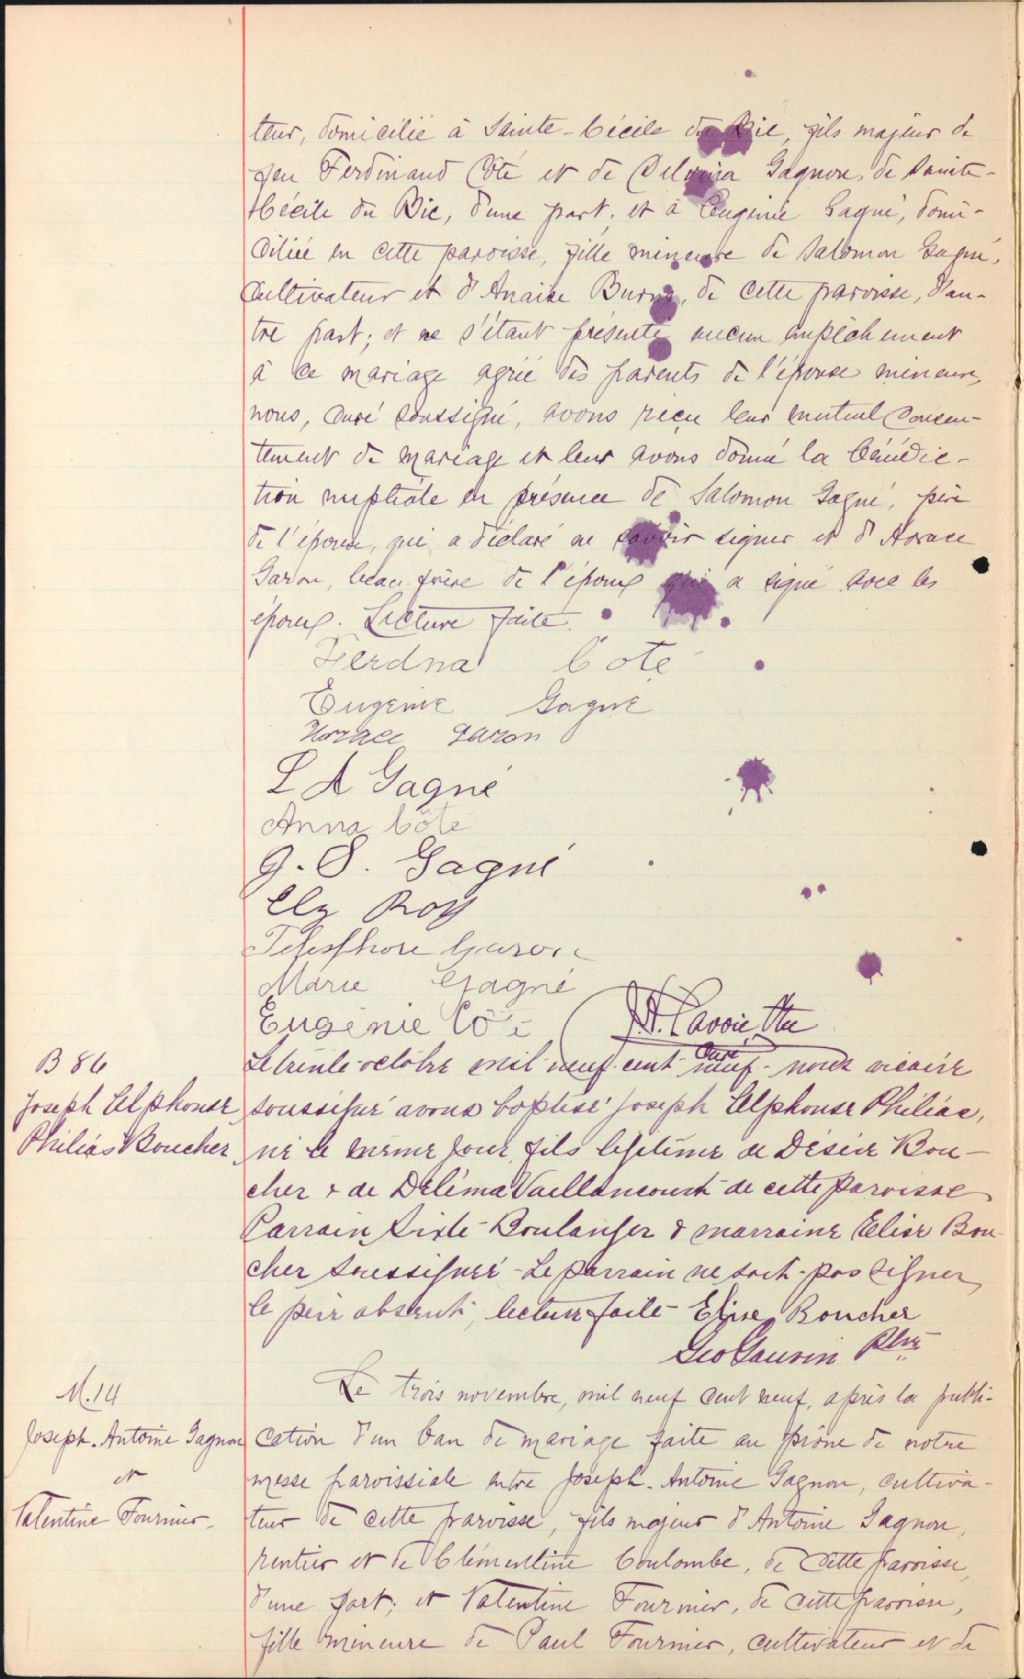 teur, domicilié à Sainte-Cécile du Bic, fils majeur de
feu Ferdinand Côté et de Delvina Gagnon, de Sainte-
Cécile du Bic, d'une part; et à Eugénie Gagné, domi-
ciliée en cette paroisse, fille mineure de Salomon Gagné,
cultivateur et d'Anaïse, de cette paroisse, d'au-
tre part; et ne s'étant présenté aucun empêchement
à ce mariage agréé des parents de l'épouse mineure,
nous, curé soussigné, avons reçu leur mutuel consen-
tement de mariage et leur avons donné la bénédic-
tion nuptiale en présence de Salomon Gagné, père
de l'épouse, qui a déclaré ne savoir signer et d'Horace
Garon, beau-frère de l'époux qui a signé avec les
époux. Lecture faite.
Ferdna Coté
Eugénie Gagné
Horace Garon
L A Gagné
Anna Côté
J. S. Gagné
Ely Roy
Télesphore Garon
Marie Gagné
Eugénie Côté
Lavoie Ptre
curé
B 86
Joseph Alphonse
Philias Boucher
Le trente-octobre mil-neuf-cent-neuf-nous vicaire
soussigné avons baptisé Joseph Alphonse Philias,
né le même jour fils légitime de Désiré Bou-
cher & de Déléma Vaillancourt de cette paroisse
Parrain Sixte Boulanger & marraine Elise Bou-
cher soussignée - Le parrain ne sait-pas signer,
le père absent, lecture faite - Elise Boucher
Geo Gauvin Ptre
M. 14
Joseph-Antoine Gagnon
et
Valentine Fournier.
Le trois novembre, mil neuf cent neuf, après la publi-
cation d'un ban de mariage faite au prône de notre
messe paroissiale entre Joseph-Antoine Gagnon, cultiva-
teur de cette paroisse, fils majeur d'Antoine Gagnon,
rentier et de Clémentine Coulombe, de cette paroisse,
d'une part; et Valentine Fournier, de cette paroisse,
fille mineure de Paul Fournier, cultivateur et de